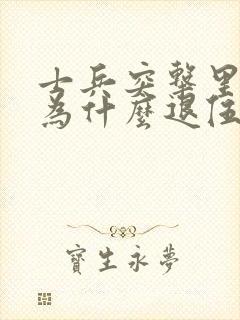 士兵突擊里
為什麼退伍
寶生永夢